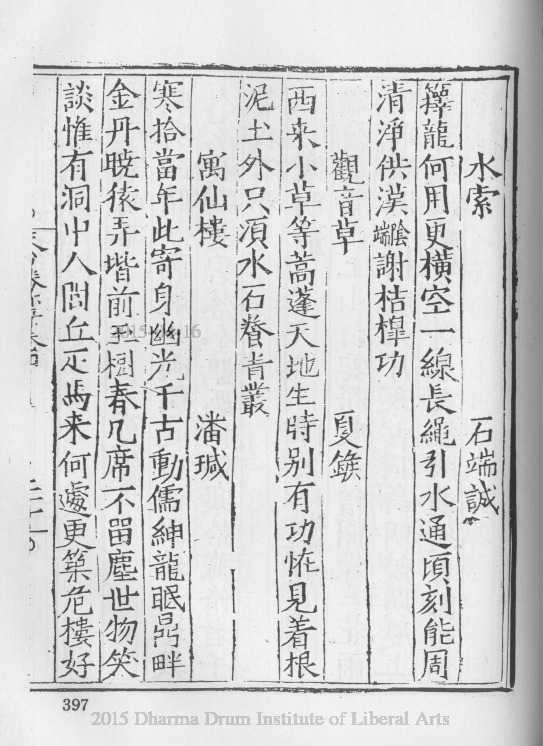 水索 石端誠
籜龍何用更橫空一線長繩引水通頃刻能周
清淨供漢陰端謝桔槹功
觀音草 夏鍭
西来小草等蒿蓬天地生時别有功恠見着根
泥土外只湏水石養青叢
寓仙樓 潘珹
寒拾當年此寄身幽光千古動儒紳龍眠曷畔
金丹曉猿弄堦前玉樹春几席不畱塵世物笑
談惟有洞中人閭丘疋馬来何處更築危樓好
2015
16
397
2015 Dharma Drum Institute of Liberal Arts